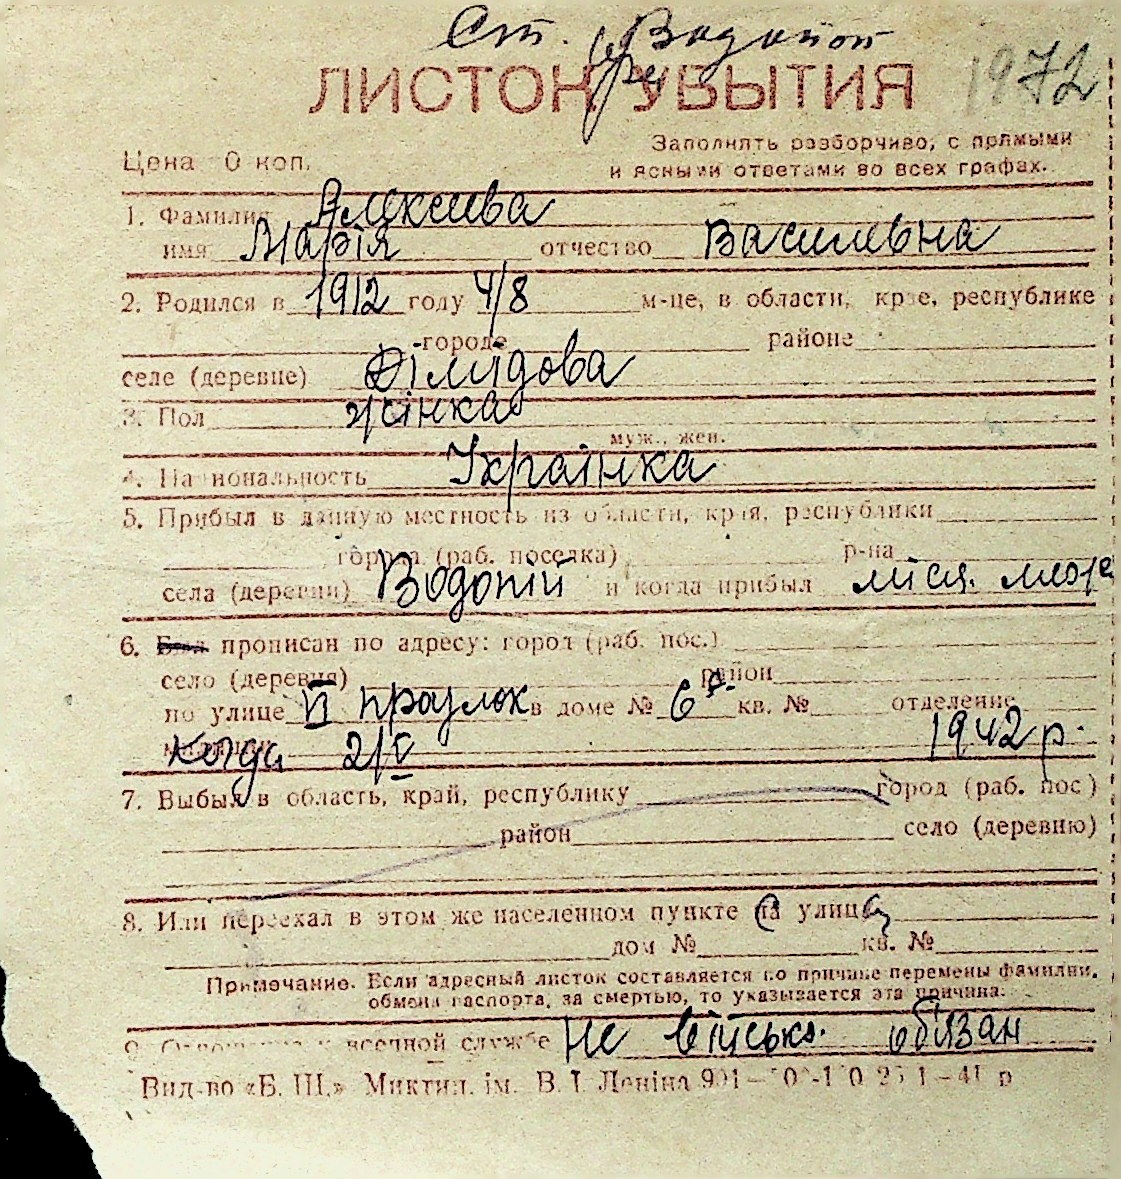 Ст. Водопой
ЛИСТОК УБЫТИЯ 1972
Заполнять разборчиво, с прямыми
Цена 0 коп. и ясными ответами во всех графах.
1. Фамилия Алексиева
имя Марія отчество Василевна
2. Родился в 1912 году 4/8 м-це, в области, крае, республике
городе районе
селе (деревне)
3. Пол жінка
муж., жен.
4. Национальность Українка
5. Прибыл в данную местность из области, края, республики
города (раб. поселка) р-на
села (деревни) Водопій и когда прибыл
6. прописан по адресу: город (раб. пос.)
село (деревня) район
по улице VI праулок в доме № 6а. кв. № отделение
Когда 2/V 1942 р.
7. Выбыл в область, край, республику город (раб. пос.)
район село (деревню)
8. Или переехал в этом же населенном пункте на улицу
дом № кв. №
Примечание. Если адресный листок составляется по причине перемены фамилии,
обмена паспорта, за смертью, то указывается эта причина.
9. Отношение к военной службе Не військ. обізан
Вид-во «Б. Ш.» Микт. ім. В. І. Леніна